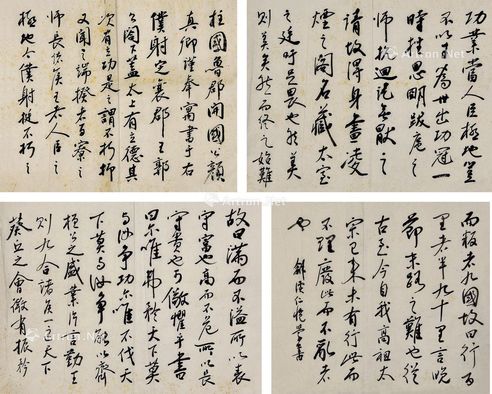 柱國魯郡開國公顏
真卿謹奉寓書于右
僕射定襄郡王郭
公閣下蓋太上有立德其
次有立功是之謂不朽抑
又聞之端揆者百寮之
師長諸侯王者人臣之
極地今僕射挺不朽之
功業當人臣極地豈
不以才為世出功冠一
時挫思明跋扈之
師抗迴紇無厭之
請故得身畫凌
煙之閣名藏太室
之廷吁足畏也然美
則美矣然而終之始難
故曰滿而不溢所以長
守富也高而不危所以長
守貴也可儆懼乎書
曰爾唯弗矜天下莫
與汝爭功爾唯不伐天
下莫與汝爭能以齊
桓公之盛業片言勤王
則九合諸侯一匡天下
葵丘之會微有振矜
而叛者九國故曰行百
里者半九十里言晚
節末路之難也從
古至今自我高祖太
宗已來未有行此而
不理廢此而不亂者
也